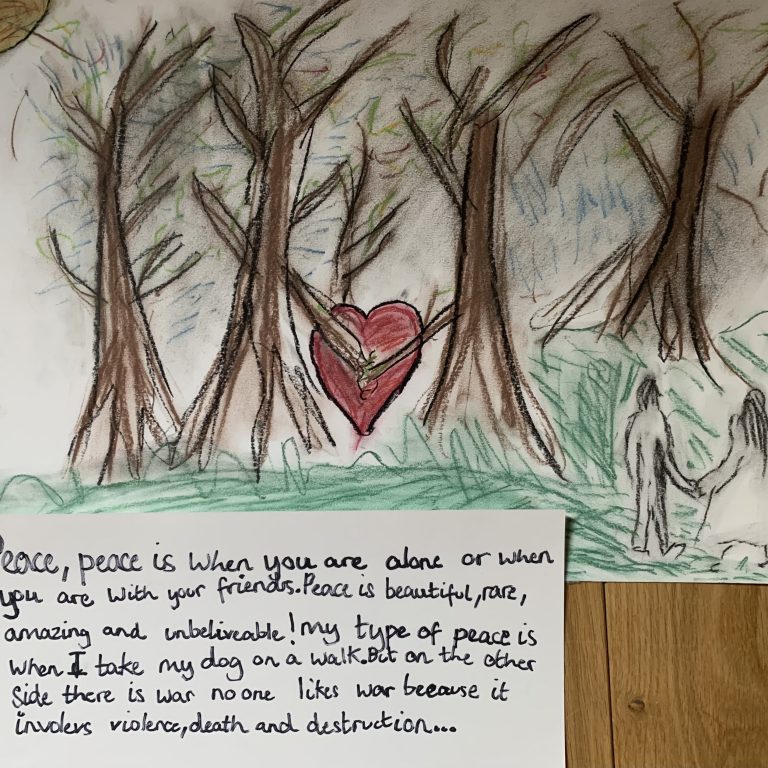 Peace, peace is when you are alone or when
you are with your friends. Peace is beautiful, rare,
amazing and unbeliveable! My type of peace is
when I take my dog on a walk. But on the other
side there is war no one likes war because it
involers violence, death and destruction...